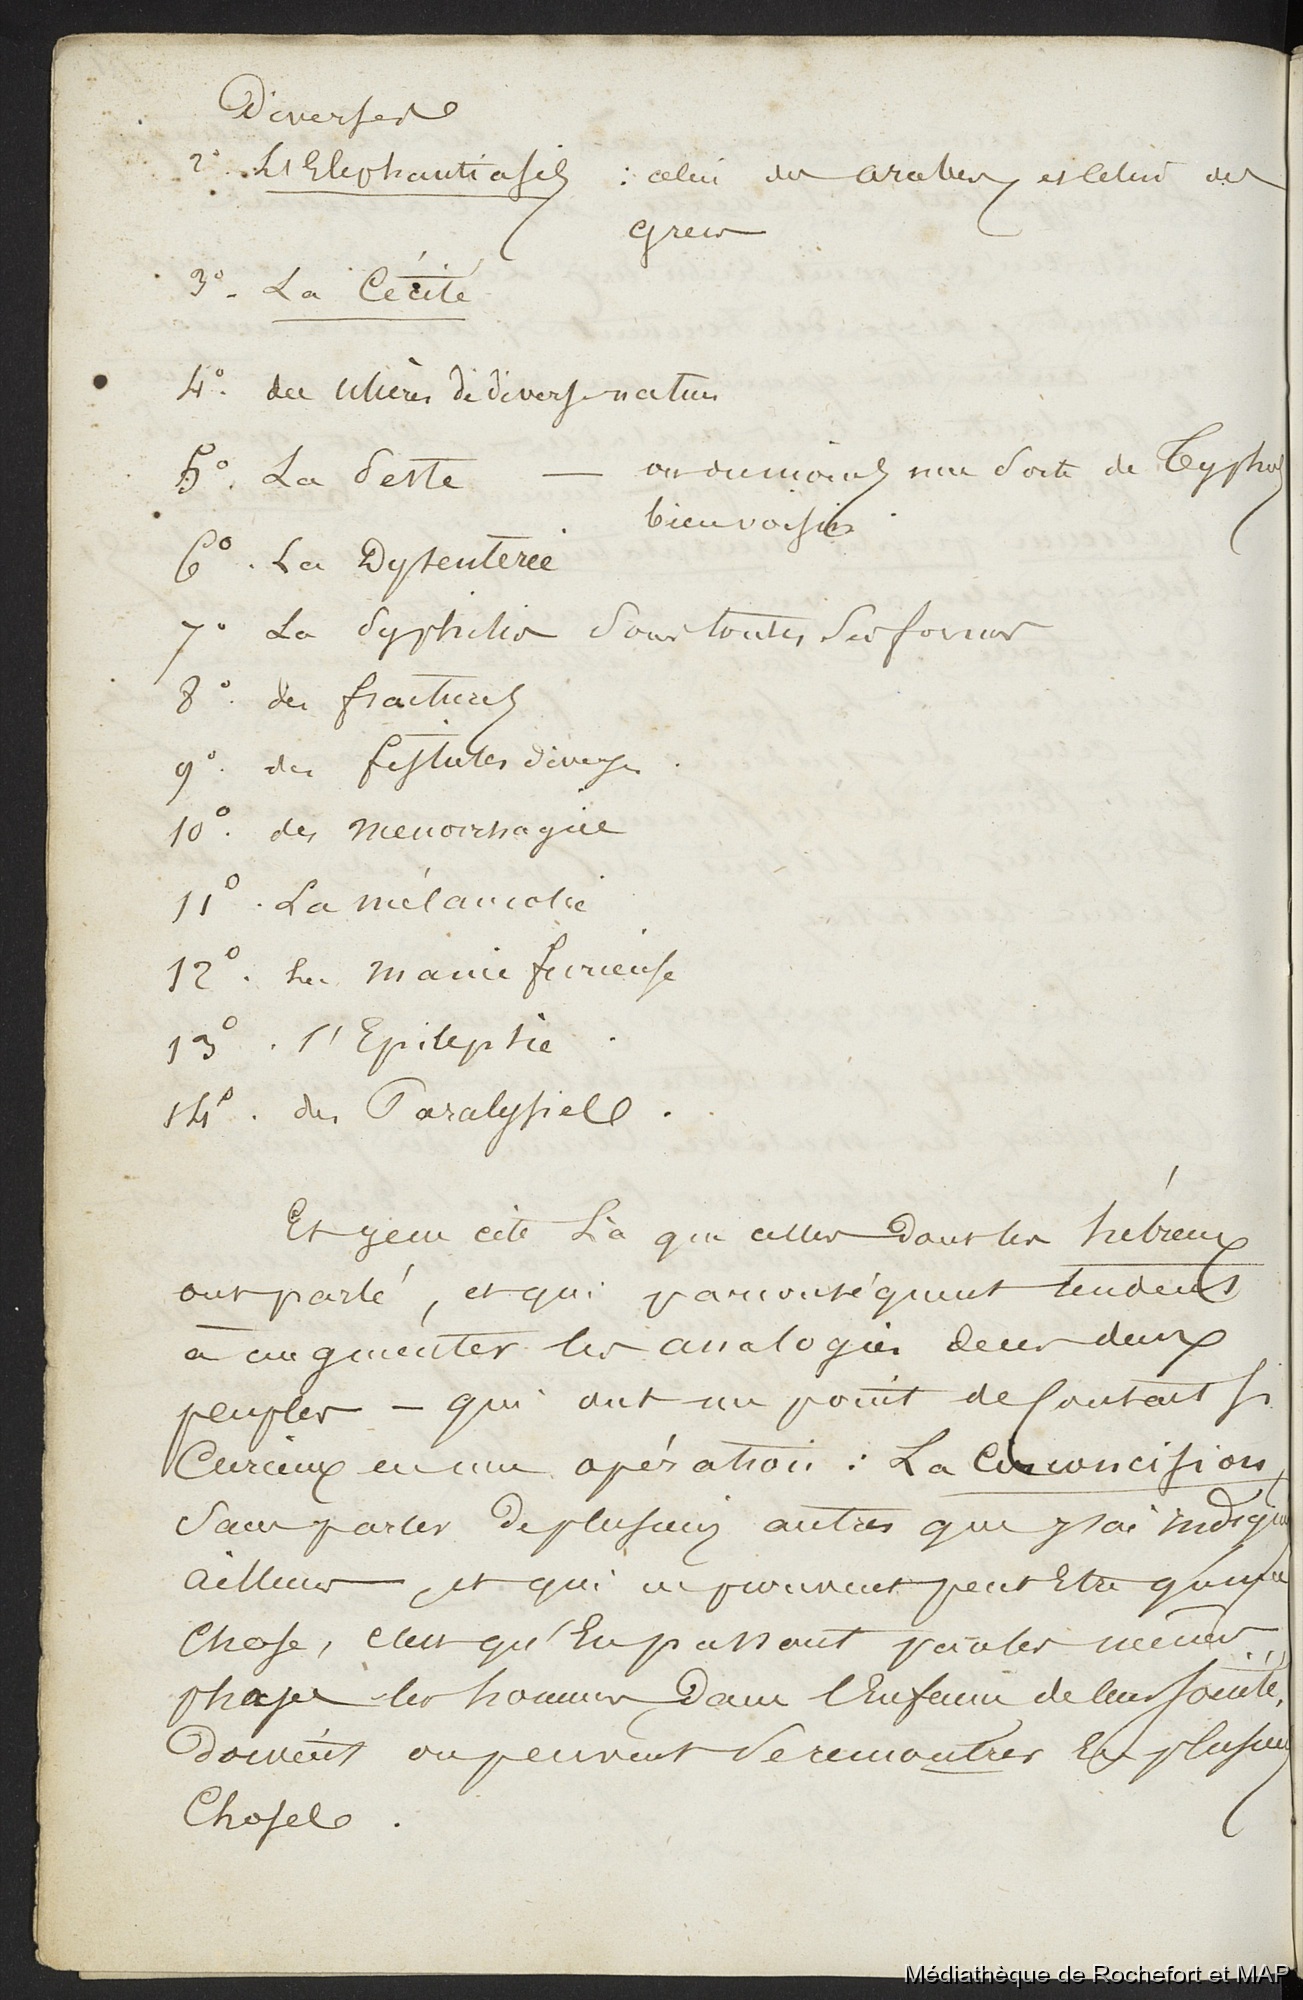 Diverses
2° L'Elephantiasis : celui des arabes et celui des
grecs
3°. La Cécité
4°. des ulcères de diverse nature
5°. La Peste — ou du moins une sorte de Typhus
bien voisin.
6°. La Dysenterie
7° La Syphilis sous toutes ses formes
8°. des fractures
9°. des fistules diverses.
10°. des menorrhagies
11°. La mélancolie
12°. La manie furieuse
13°. l'Epilepsie.
14°. des Paralysies.
Et je ne cite là que celles dont les hébreux
ont parlé, et qui par conséquent tendent
à augmenter les analogies de ces deux
peuples — qui ont un point de Contact si
Curieux en une opération : La Circoncision,
Sans parler de plusieurs autres que j'ai indiqué
ailleurs, et qui ne prouvent peut Etre qu'une
Chose, c'est qu'En passant par les mêmes
phases les hommes dans l'Enfance de leur société,
doivent ou peuvent se rencontrer En plusieurs
Choses.
Médiathèque de Rochefort et MAP